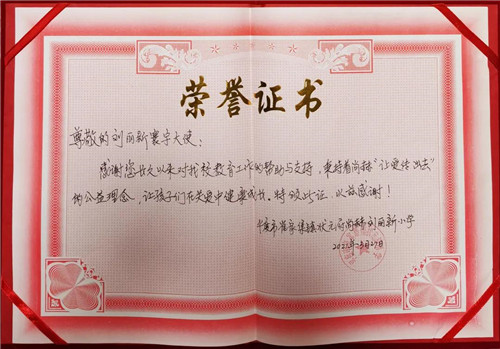 荣誉证书
尊敬的刘丽新寰宇大使：
感谢您长久以来对我校教育工作的帮助与支持，秉持着尚赫“让爱传出去”
的公益理念，让孩子们在关爱中健康成长。特颁此证，以兹感谢！
市崔家集镇状元府尚赫刘丽新小学
2022年3月27日